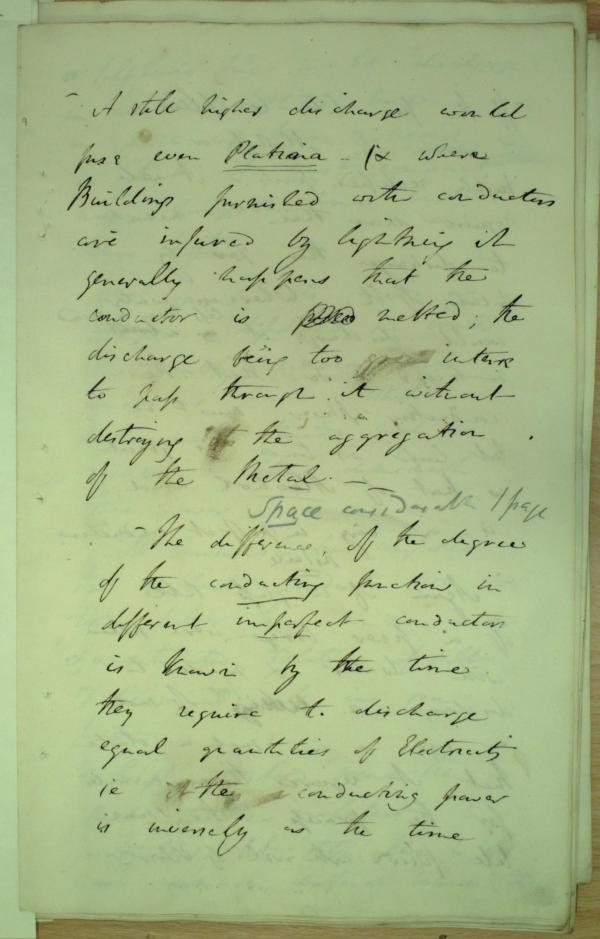 - A still higher discharge would
fuse even Platina - & where
Buildings furnished with conductors
are injured by lightning it
generally happens that the
conductor is melted; the
discharge being too intense
to pass through it without
destroying the aggregation
of the Metal. -
Space considerable 1 page
- The difference, of the degree
of the conducting function in
different imperfect conductors
is known by the time
they require to discharge
equal quantities of Electricity
ie the conducting power
is inversely as the time